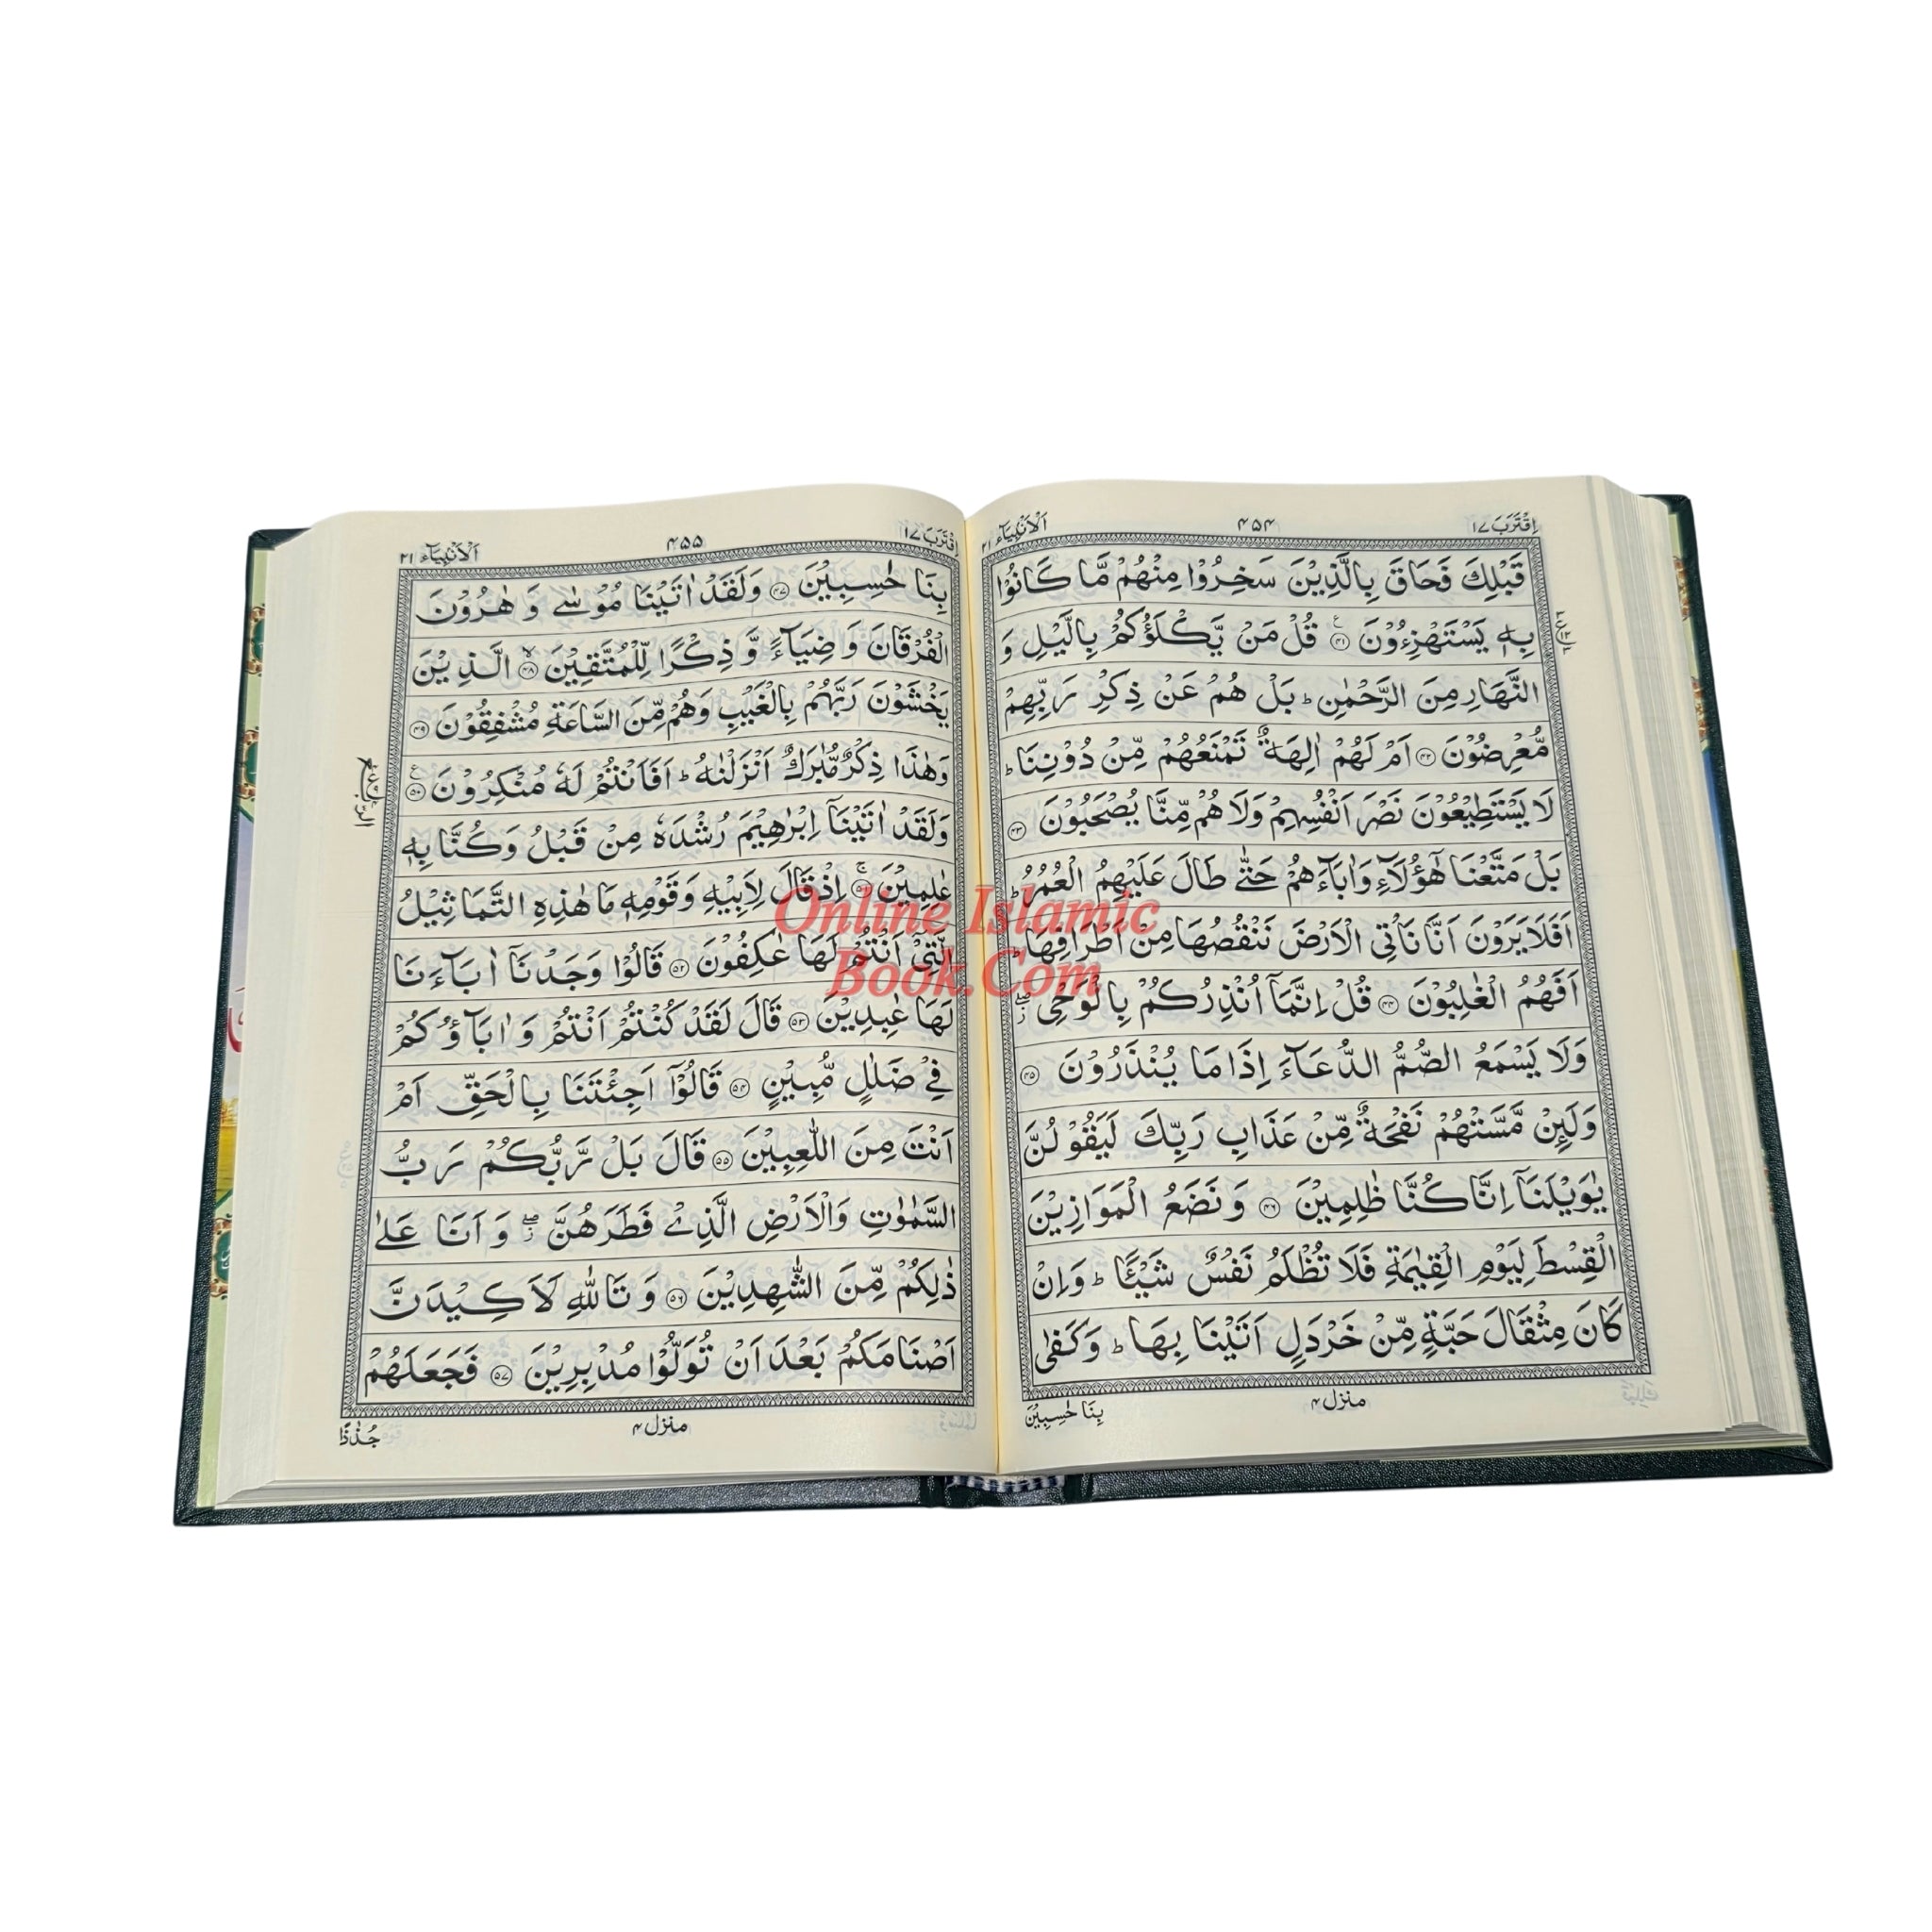 اِقْتَرَبَ ١٧
۴۵۴
اَلْاَنْۢبِيَآء ٢١
قَبْلِكَ فَحَاقَ بِالَّذِيْنَ سَخِرُوْا مِنْهُمْ مَّا كَانُوْا
بِهٖ يَسْتَهْزِءُوْنَ ۴۱ قُلْ مَنْ يَّكْلَؤُكُمْ بِالَّيْلِ وَ
النَّهَارِ مِنَ الرَّحْمٰنِ ؕ بَلْ هُمْ عَنْ ذِكْرِ رَبِّهِمْ
مُّعْرِضُوْنَ ۴۲ اَمْ لَهُمْ اٰلِهَةٌ تَمْنَعُهُمْ مِّنْ دُوْنِنَا ؕ
لَا يَسْتَطِيْعُوْنَ نَصْرَ اَنْفُسِهِمْ وَلَا هُمْ مِّنَّا يُصْحَبُوْنَ ۴۳
بَلْ مَتَّعْنَا هٰٓؤُلَآءِ وَاٰبَآءَهُمْ حَتّٰى طَالَ عَلَيْهِمُ الْعُمُرُ ؕ
اَفَلَا يَرَوْنَ اَنَّا نَاْتِى الْاَرْضَ نَنْقُصُهَا مِنْ اَطْرَافِهَا ؕ
اَفَهُمُ الْغٰلِبُوْنَ ۴۴ قُلْ اِنَّمَآ اُنْذِرُكُمْ بِالْوَحْىِ ۖ ز
وَلَا يَسْمَعُ الصُّمُّ الدُّعَآءَ اِذَا مَا يُنْذَرُوْنَ ۴۵
وَلَئِنْ مَّسَّتْهُمْ نَفْحَةٌ مِّنْ عَذَابِ رَبِّكَ لَيَقُوْلُنَّ
يٰوَيْلَنَآ اِنَّا كُنَّا ظٰلِمِيْنَ ۴۶ وَنَضَعُ الْمَوَازِيْنَ
الْقِسْطَ لِيَوْمِ الْقِيٰمَةِ فَلَا تُظْلَمُ نَفْسٌ شَيْـًٔا ؕ وَاِنْ
كَانَ مِثْقَالَ حَبَّةٍ مِّنْ خَرْدَلٍ اَتَيْنَا بِهَا ؕ وَكَفٰى
منزل ۴
بِنَا حٰسِبِيْنَ
اِقْتَرَبَ ١٧
۴۵۵
اَلْاَنْۢبِيَآء ٢١
بِنَا حٰسِبِيْنَ ۴۷ وَلَقَدْ اٰتَيْنَا مُوْسٰى وَ هٰرُوْنَ
الْفُرْقَانَ وَ ضِيَآءً وَّ ذِكْرًا لِّلْمُتَّقِيْنَ ۙ ۴۸ الَّذِيْنَ
يَخْشَوْنَ رَبَّهُمْ بِالْغَيْبِ وَهُمْ مِّنَ السَّاعَةِ مُشْفِقُوْنَ ۴۹
وَهٰذَا ذِكْرٌ مُّبٰرَكٌ اَنْزَلْنٰهُ ؕ اَفَاَنْتُمْ لَهٗ مُنْكِرُوْنَ ۵۰
وَلَقَدْ اٰتَيْنَآ اِبْرٰهِيْمَ رُشْدَهٗ مِنْ قَبْلُ وَكُنَّا بِهٖ
عٰلِمِيْنَ ۵۱ اِذْ قَالَ لِاَبِيْهِ وَقَوْمِهٖ مَا هٰذِهِ التَّمَاثِيْلُ
الَّتِيْٓ اَنْتُمْ لَهَا عٰكِفُوْنَ ۵۲ قَالُوْا وَجَدْنَآ اٰبَآءَنَا
لَهَا عٰبِدِيْنَ ۵۳ قَالَ لَقَدْ كُنْتُمْ اَنْتُمْ وَ اٰبَآؤُكُمْ
فِيْ ضَلٰلٍ مُّبِيْنٍ ۵۴ قَالُوْٓا اَجِئْتَنَا بِالْحَقِّ اَمْ
اَنْتَ مِنَ اللّٰعِبِيْنَ ۵۵ قَالَ بَلْ رَّبُّكُمْ رَبُّ
السَّمٰوٰتِ وَالْاَرْضِ الَّذِيْ فَطَرَهُنَّ ۖ ز وَ اَنَا عَلٰى
ذٰلِكُمْ مِّنَ الشّٰهِدِيْنَ ۵۶ وَ تَاللّٰهِ لَاَكِيْدَنَّ
اَصْنَامَكُمْ بَعْدَ اَنْ تُوَلُّوْا مُدْبِرِيْنَ ۵۷ فَجَعَلَهُمْ
منزل ۴
جُذٰذًا
Online Islamic
Book.Com